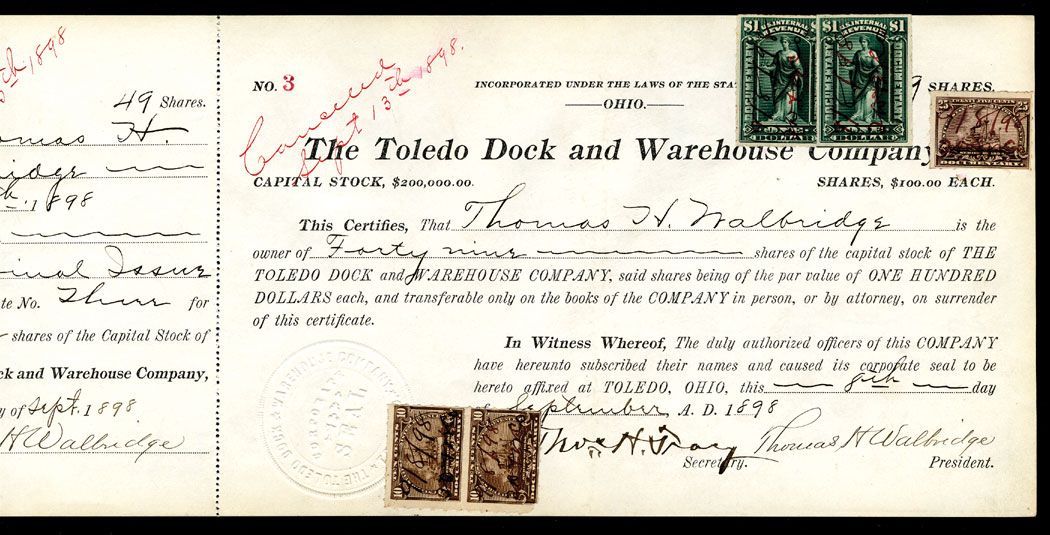 th 1898
49 Shares.
Thomas H.
1898
Original Issue
No. Three for
shares of the Capital Stock of
and Warehouse Company,
of Sept. 1898
H Walbridge
NO. 3
INCORPORATED UNDER THE LAWS OF THE
OHIO.
9 SHARES.
Canceled
Sept 13th 1898.
The Toledo Dock and Warehouse Company
CAPITAL STOCK, $200,000.00.
SHARES, $100.00 EACH.
This Certifies, That Thomas H. Walbridge is the
owner of Forty nine shares of the capital stock of THE
TOLEDO DOCK and WAREHOUSE COMPANY, said shares being of the par value of ONE HUNDRED
DOLLARS each, and transferable only on the books of the COMPANY in person, or by attorney, on surrender
of this certificate.
In Witness Whereof, The duly authorized officers of this COMPANY
have hereunto subscribed their names and caused its corporate seal to be
hereto affixed at TOLEDO, OHIO, this 8th day
of September A. D. 1898
Thos. H. Tracy
Secretary.
Thomas H Walbridge
President.
$1 U.S. INTERNAL REVENUE $1
DOCUMENTARY
ONE DOLLAR
$1 U.S. INTERNAL REVENUE $1
DOCUMENTARY
ONE DOLLAR
25 TWENTY FIVE CENTS 25
DOCUMENTARY
10
10
10
10
SEAL